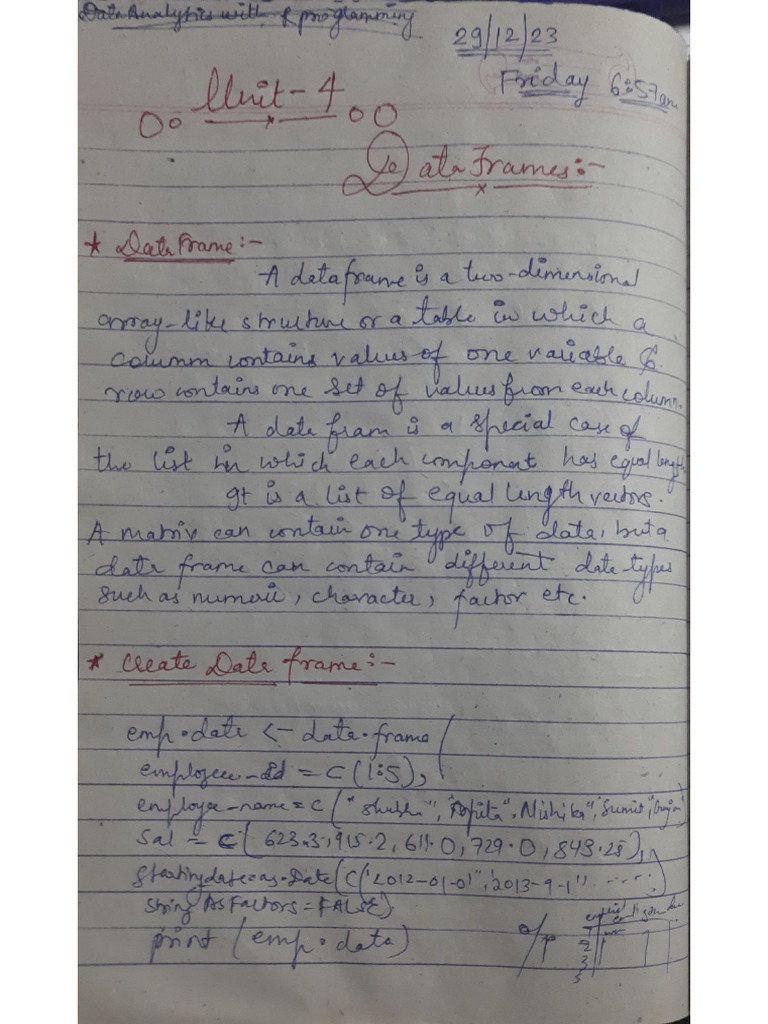 Data Analytics with R programming
29/12/23
Friday 6:57am
Unit-4
Data Frames:-
* Data Frame:-
A dataframe is a two-dimensional
array-like structure or a table in which a
column contains values of one variable &
row contains one set of values from each column.
A data fram is a special case of
the list in which each component has equal length
It is a list of equal length vectors.
A matrix can contain one type of data, but a
data frame can contain different data types
such as numeric, character, factor etc.
* Create Data frame:-
emp.data <- data.frame(
employee-id = C(1:5),
employee-name = C("Shubh", "Arpita", "Nishika", "Sumit",
Sal = C(623.3, 915.2, 611.0, 729.0, 843.25),
startingdate=as.Date(C("2012-01-01", "2013-9-1" ......)
stringAsFactors=FALSE)
print (emp.data)
o/p
1
2
3